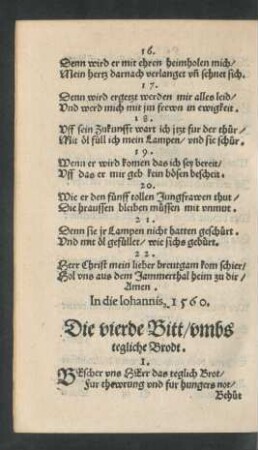 16.
Denn wird er mit ehren heimholen mich/
Mein hertz darnach verlanget vñ sehnet sich.
17.
Denn wird ergetzt werden mir alles leid/
Vnd werd mich mit jm frewn in ewigkeit.
18.
Vff sein Zukunfft wart ich jtzt fur der thür/
Mit öl füll ich mein Lampen/ vnd sie schür.
19.
Wenn er wird komen das ich sey bereit/
Vff das er mir geb kein bösen bescheit.
20.
Wie er den fünff tollen Jungfrawen thut/
Die draussen bleiben müssen mit vnmut.
21.
Denn sie jr Lampen nicht hatten geschürt.
Vnd mit öl gefüllet/ wie sichs gebürt.
22.
Herr Christ mein lieber breutgam kom schier/
Hol vns aus dem Jammerthal heim zu dir/
Amen.
In die Iohannis, 1560.
Die vierde Bitt/ vmbs
tegliche Brodt.
1.
BEscher vns HErr das teglich Brot/
Fur thewrung vnd fur hungers not/
Behüt